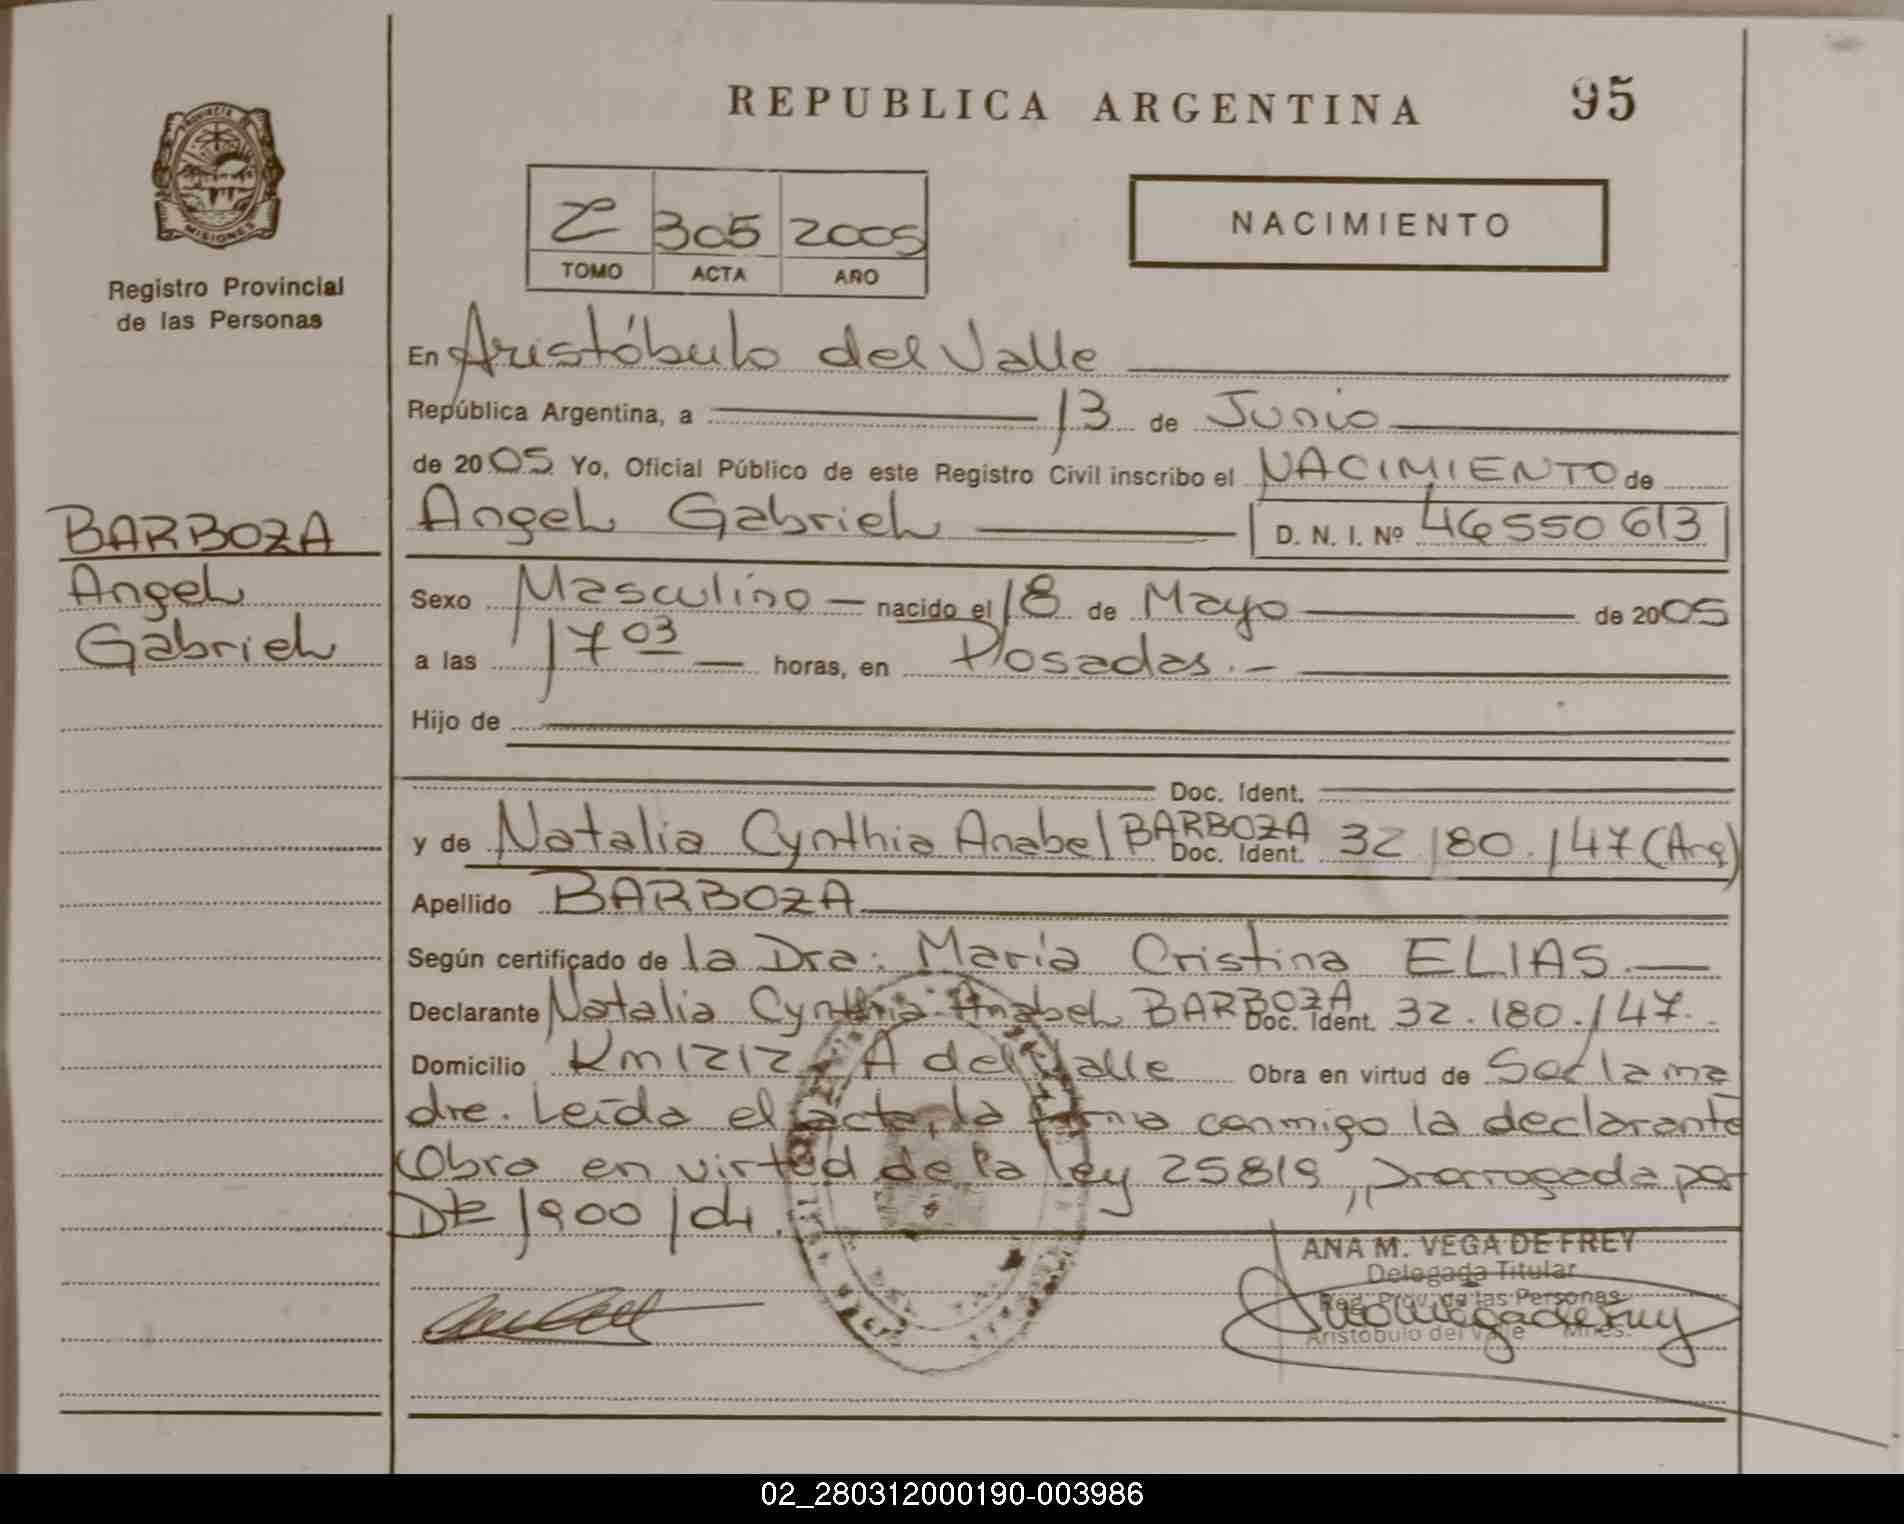 REPUBLICA ARGENTINA 95
PROVINCIA DE
MISIONES
Registro Provincial
de las Personas
2 305 2005
TOMO ACTA AÑO
NACIMIENTO
En Aristóbulo del Valle
República Argentina, a 13 de Junio
de 2005 Yo, Oficial Público de este Registro Civil inscribo el NACIMIENTO de
Angel Gabriel D. N. I. Nº 46550613
BARBOZA
Angel
Gabriel
Sexo Masculino nacido el 18 de Mayo de 2005
a las 17 03 horas, en Posadas.-
Hijo de
Doc. Ident.
y de Natalia Cynthia Anabel BARBOZA Doc. Ident. 32.180.147 (Arg)
Apellido BARBOZA
Según certificado de la Dra. María Cristina ELIAS.
Declarante Natalia Cynthia Anabel BARBOZA Doc. Ident. 32.180.147.
Domicilio Km 1212 A del Valle Obra en virtud de Ser la ma
dre. Leída el acta, la firma conmigo la declarante
Obra en virtud de la ley 25819, prorrogada por
Dto 1900/04.
ANA M. VEGA DE FREY
Delegada Titular
Reg. Prov. de las Personas
Aristobulo del Valle Mnes.
02_280312000190-003986